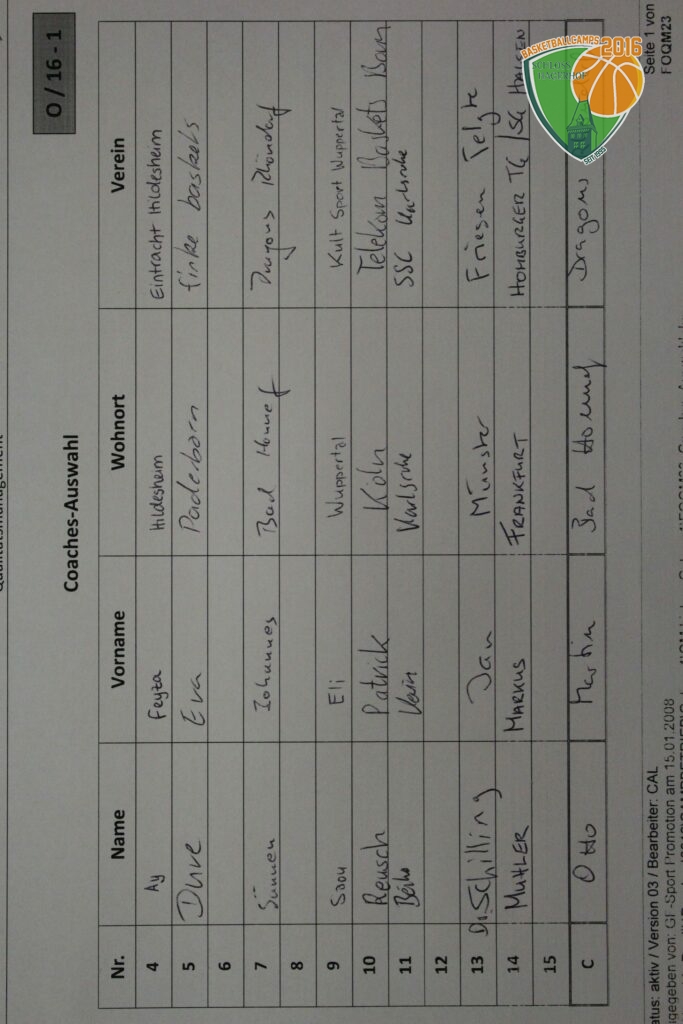 O / 16 - 1
Coaches-Auswahl
Nr. Name Vorname Wohnort Verein
4 Ay Feyza Hildesheim Eintracht Hildesheim
5 Duve Eva Paderborn finke baskets
6
7 Sünnen Johannes Bad Honnef Dragons Rhöndorf
8
9 Saou Eli Wuppertal Kult Sport Wuppertal
10 Reusch Patrick Köln Telekom Baskets Bonn
11 Karlsruhe SSC Karlsruhe
12
13 Dr. Schilling Jan Münster Friesen Telgte
14 MUTLER MARKUS FRANKFURT HOMBURGER TG / SG
15
C Otto Martin Bad Honnef Dragons
BASKETBALLCAMPS 2016
SEIT 1993
Seite 1 von
FOQM23
atus: aktiv / Version 03 / Bearbeiter: CAL
gegeben von: GF-Sport Promotion am 15.01.2008